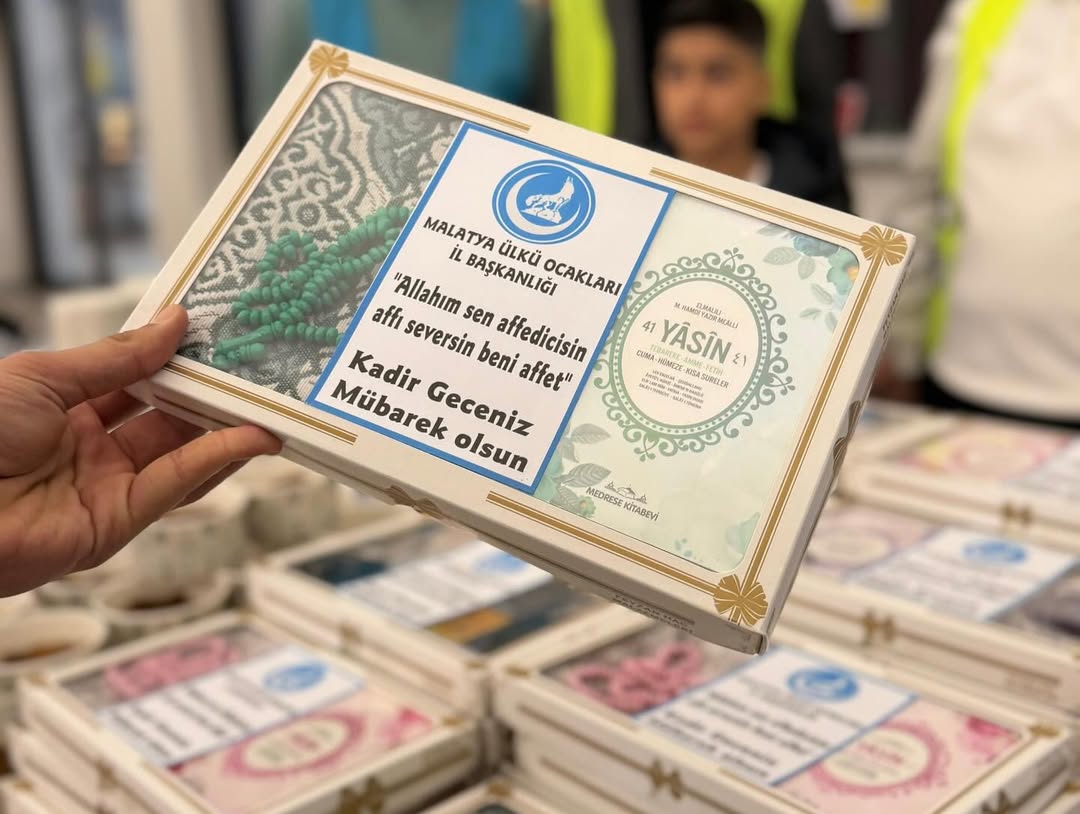 MALATYA ÜLKÜ OCAKLARI
İL BAŞKANLIĞI
"Allahım sen affedicisin
affı seversin beni affet"
Kadir Geceniz
Mübarek olsun
ELMALILI
M. HAMDİ YAZIR MEÂLLİ
41 YÂSÎN ٤١
TEBAREKE - AMME - FETİH
CUMA - HÜMEZE - KISA SURELER
MEDRESE KİTABEVİ